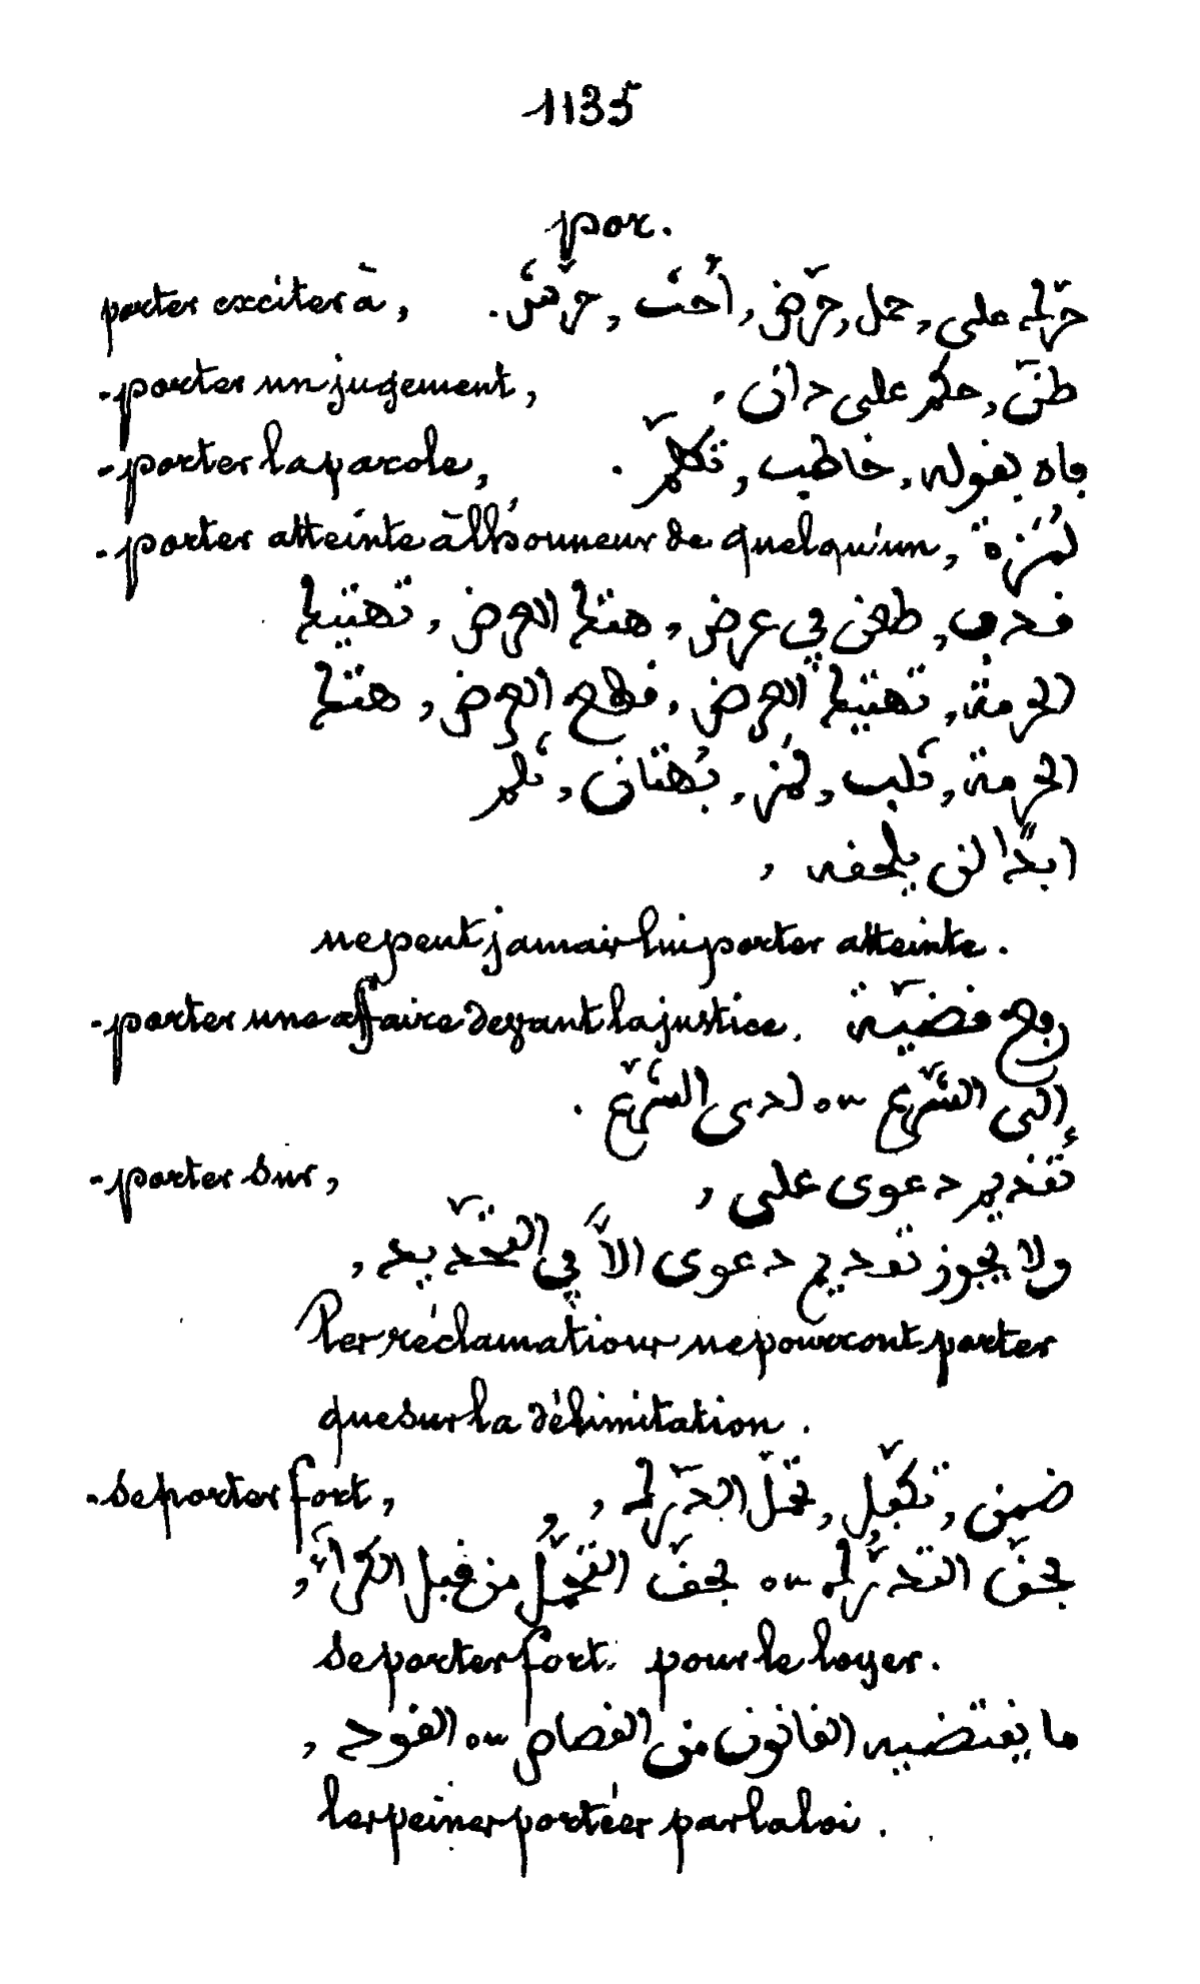 1135
por.
porter exciter à, حرّك على, حمل, حرّض, أحث, حرّش.
- porter un jugement, ظنّ, حكم على دان.
- porter la parole, فاه بقوله, خاطب, تكلّم.
- porter atteinte à l'honneur de quelqu'un, لُمَزة
قدف, طعن في عرض, هتك العرض, تهتيك
الحرمة, تهتيك العرض, قطع العرض, هتك
الحرمة, ثلب, لمز, بُهتان, ثلم
ابدًا لن يلحقه,
ne peut jamais lui porter atteinte.
- porter une affaire devant la justice. رفع قضيّة
إلى الشّرع ou لدى الشّرع.
- porter sur, تقديم دعوى على,
ولا يجوز تقديم دعوى الاّ في التحّديد,
les réclamations ne pourront porter
que sur la délimitation.
- se porter fort, ضمن, تكفّل, تحمّل الدّرك,
بحقّ التدرّك ou بحقّ التحمّل من قبل الكراء,
se porter fort pour le loyer.
ما يقتضيه القانون من القصاص ou القود,
les peines portées par la loi.